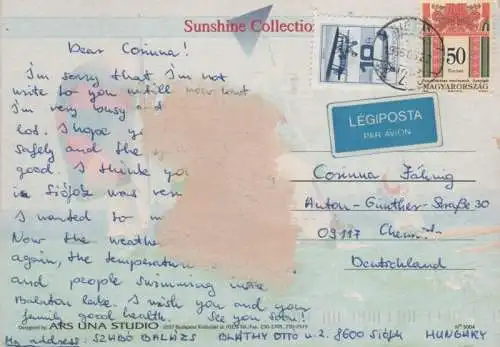 Sunshine Collection
Dear Corinna!
I'm sorry that I'm not
write to you until now but
I'm very busy and
lot. I hope yo
safely and the
good. I think yo
in Siófok was ver
I wanted to m
Now the weathe
again, the temperatur
and people swimming in the
Balaton lake. I wish you and your
family good health. See you soon!
Designed by ARS UNA STUDIO
N° 5004
My address: SZABÓ BALÁZS BLÁTHY OTTÓ u. 2. 8600 Siófok HUNGARY
10
50
MAGYARORSZÁG
LÉGIPOSTA
PAR AVION
Corinna
Anton-Günther-Straße 30
09117 Chemnitz
Deutschland